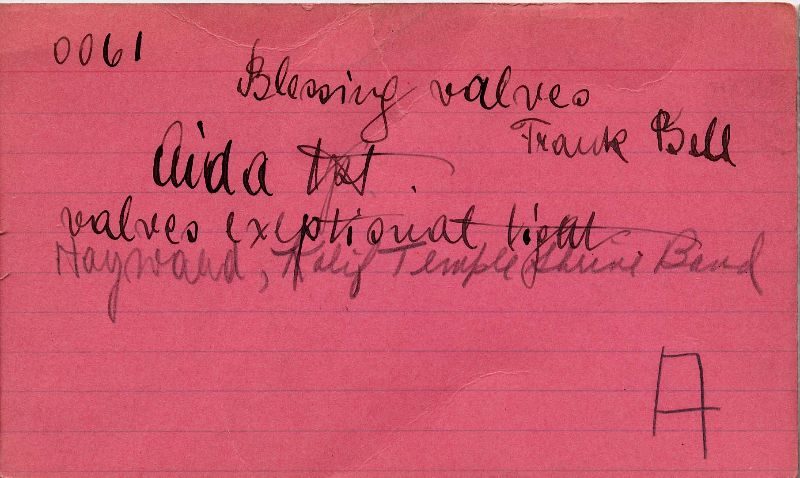 0061
Blessing valves
Frank Bell
Aida tpt.
valves exeptional tight
Hayward, Kalif Temple Shrine Band
A